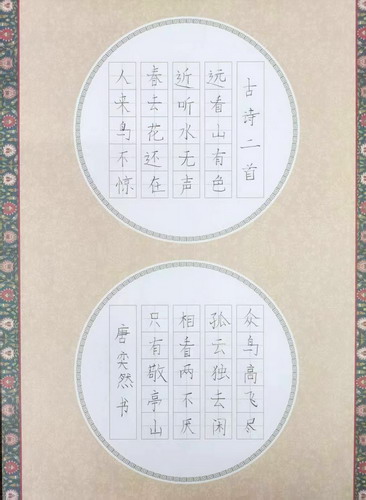 古诗二首
远看山有色
近听水无声
春去花还在
人来鸟不惊
众鸟高飞尽
孤云独去闲
相看两不厌
只有敬亭山
唐奕然书